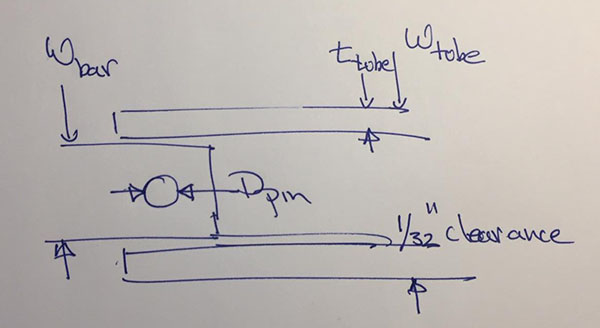 W bar
t tube
W tube
D pin
1/32" clearance